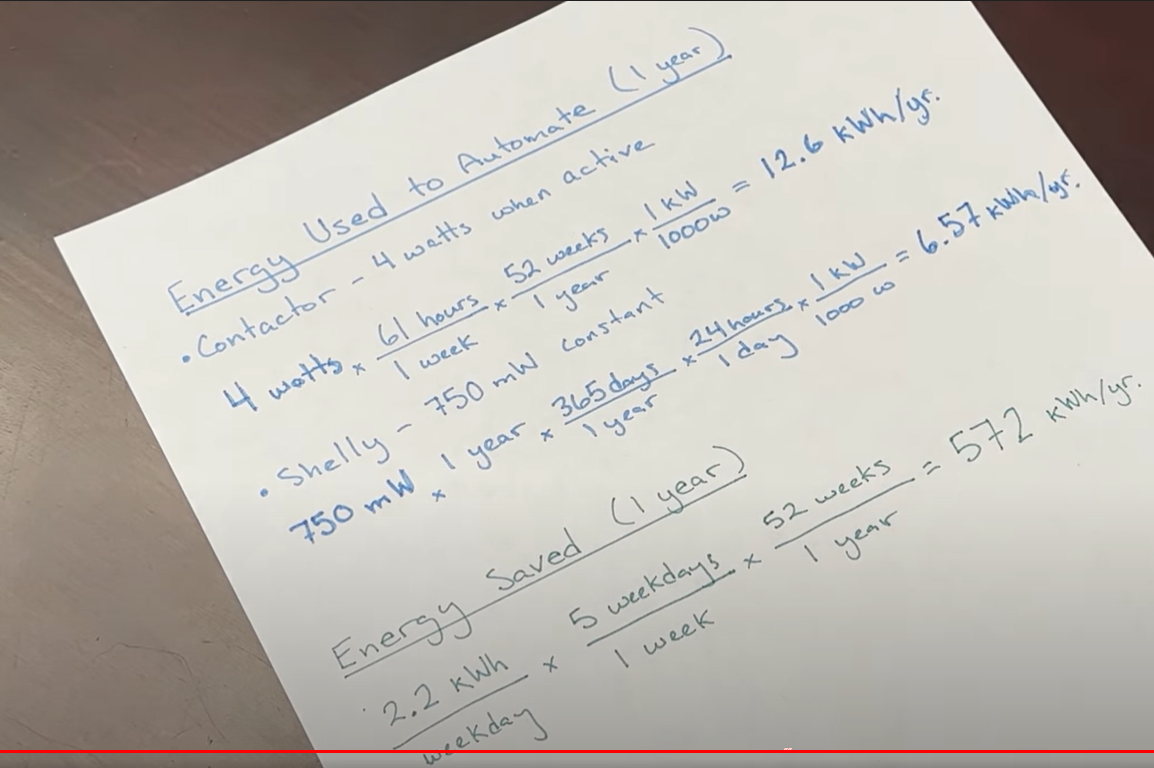 Energy Used to Automate (1 year)
• Contactor - 4 watts when active
4 watts × 61 hours/1 week × 52 weeks/1 year × 1 kW/1000 W = 12.6 kWh/yr.
• Shelly - 750 mW constant
750 mW × 1 year × 365 days/1 year × 24 hours/1 day × 1 kW/1000 W = 6.57 kWh/yr.
Energy Saved (1 year)
2.2 kWh/weekday × 5 weekdays/1 week × 52 weeks/1 year = 572 kWh/yr.